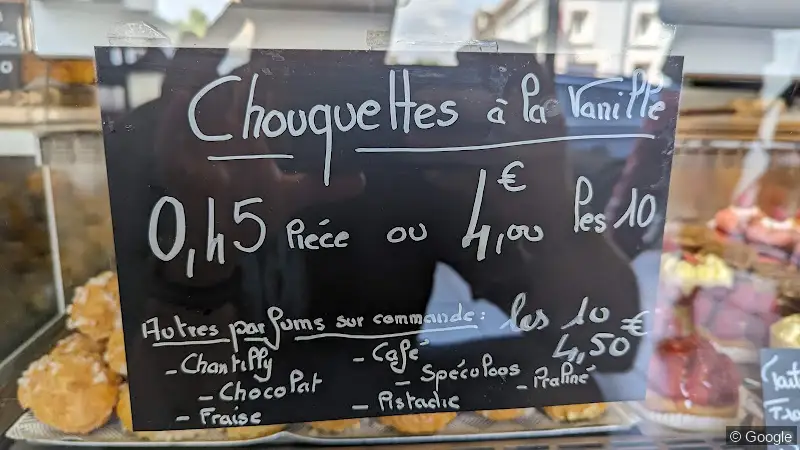 Chouquettes à la Vanille
0,45 Pièce ou 4,00€ les 10
Autres parfums sur commande : les 10
4,50€
- Chantilly - Café
- Chocolat - Spéculoos - Praliné
- Fraise - Pistache
© Google